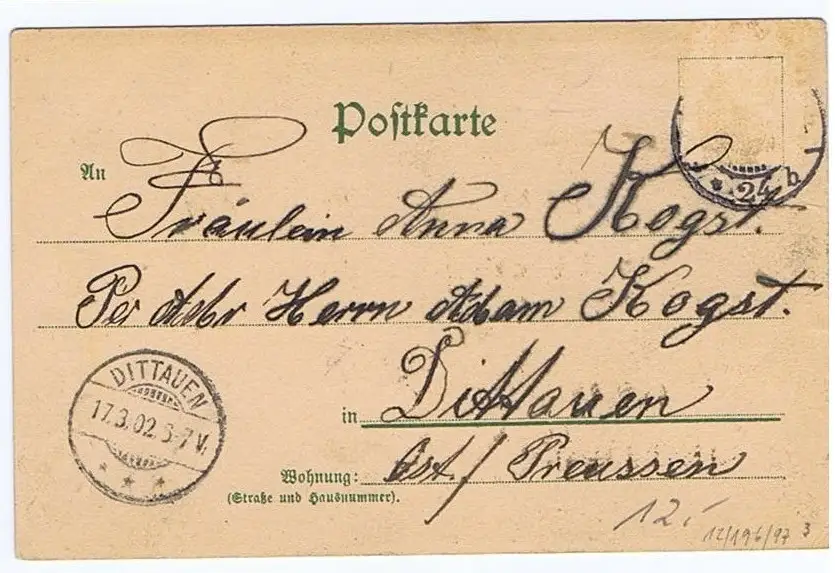 Postkarte
An
Fräulein Anna Kogst.
Per Adr Herrn Adam Kogst.
in Dittauen
Wohnung: Ost./Preussen
(Straße und Hausnummer).
DITTAUEN
17.3.02.5-7V.
* * *
* 24 b
12.-
12/196/97 3